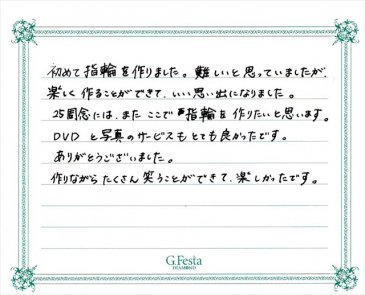 初めて指輪を作りました。難しいと思っていましたが、
楽しく作ることができて、いい思い出になりました。
25周念には、また ここで 指輪を 作りたいと思います。
DVD と写真のサービスも とても 良かったです。
ありがとうございました。
作りながら たくさん 笑うことができて、楽しかったです。
G.Festa
DIAMOND